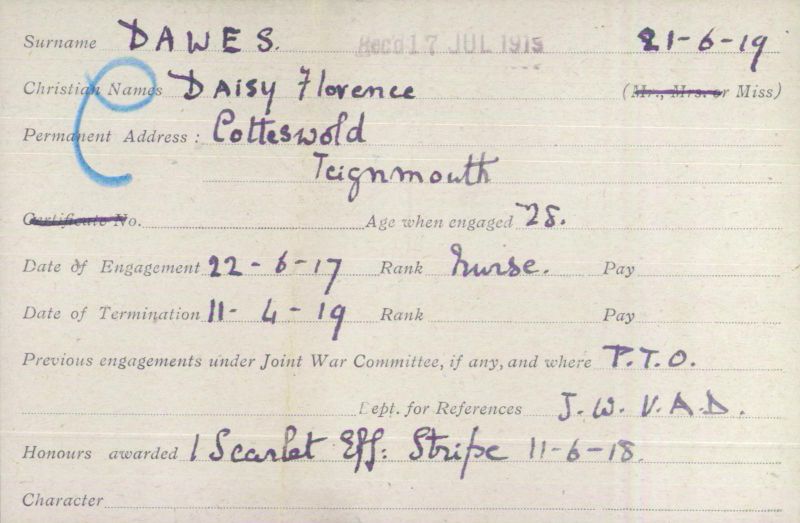 Surname DAWES. Rec'd 17 JUL 1919 21-6-19
Christian Names Daisy Florence (Mr., Mrs. or Miss)
Permanent Address : Cotteswold
Teignmouth
Certificate No. Age when engaged 28.
Date of Engagement 22-6-17 Rank Nurse. Pay
Date of Termination 11-4-19 Rank Pay
Previous engagements under Joint War Committee, if any, and where P.T.O.
Dept. for References J.W.V.A.D.
Honours awarded 1 Scarlet Eff: Stripe 11-6-18.
Character